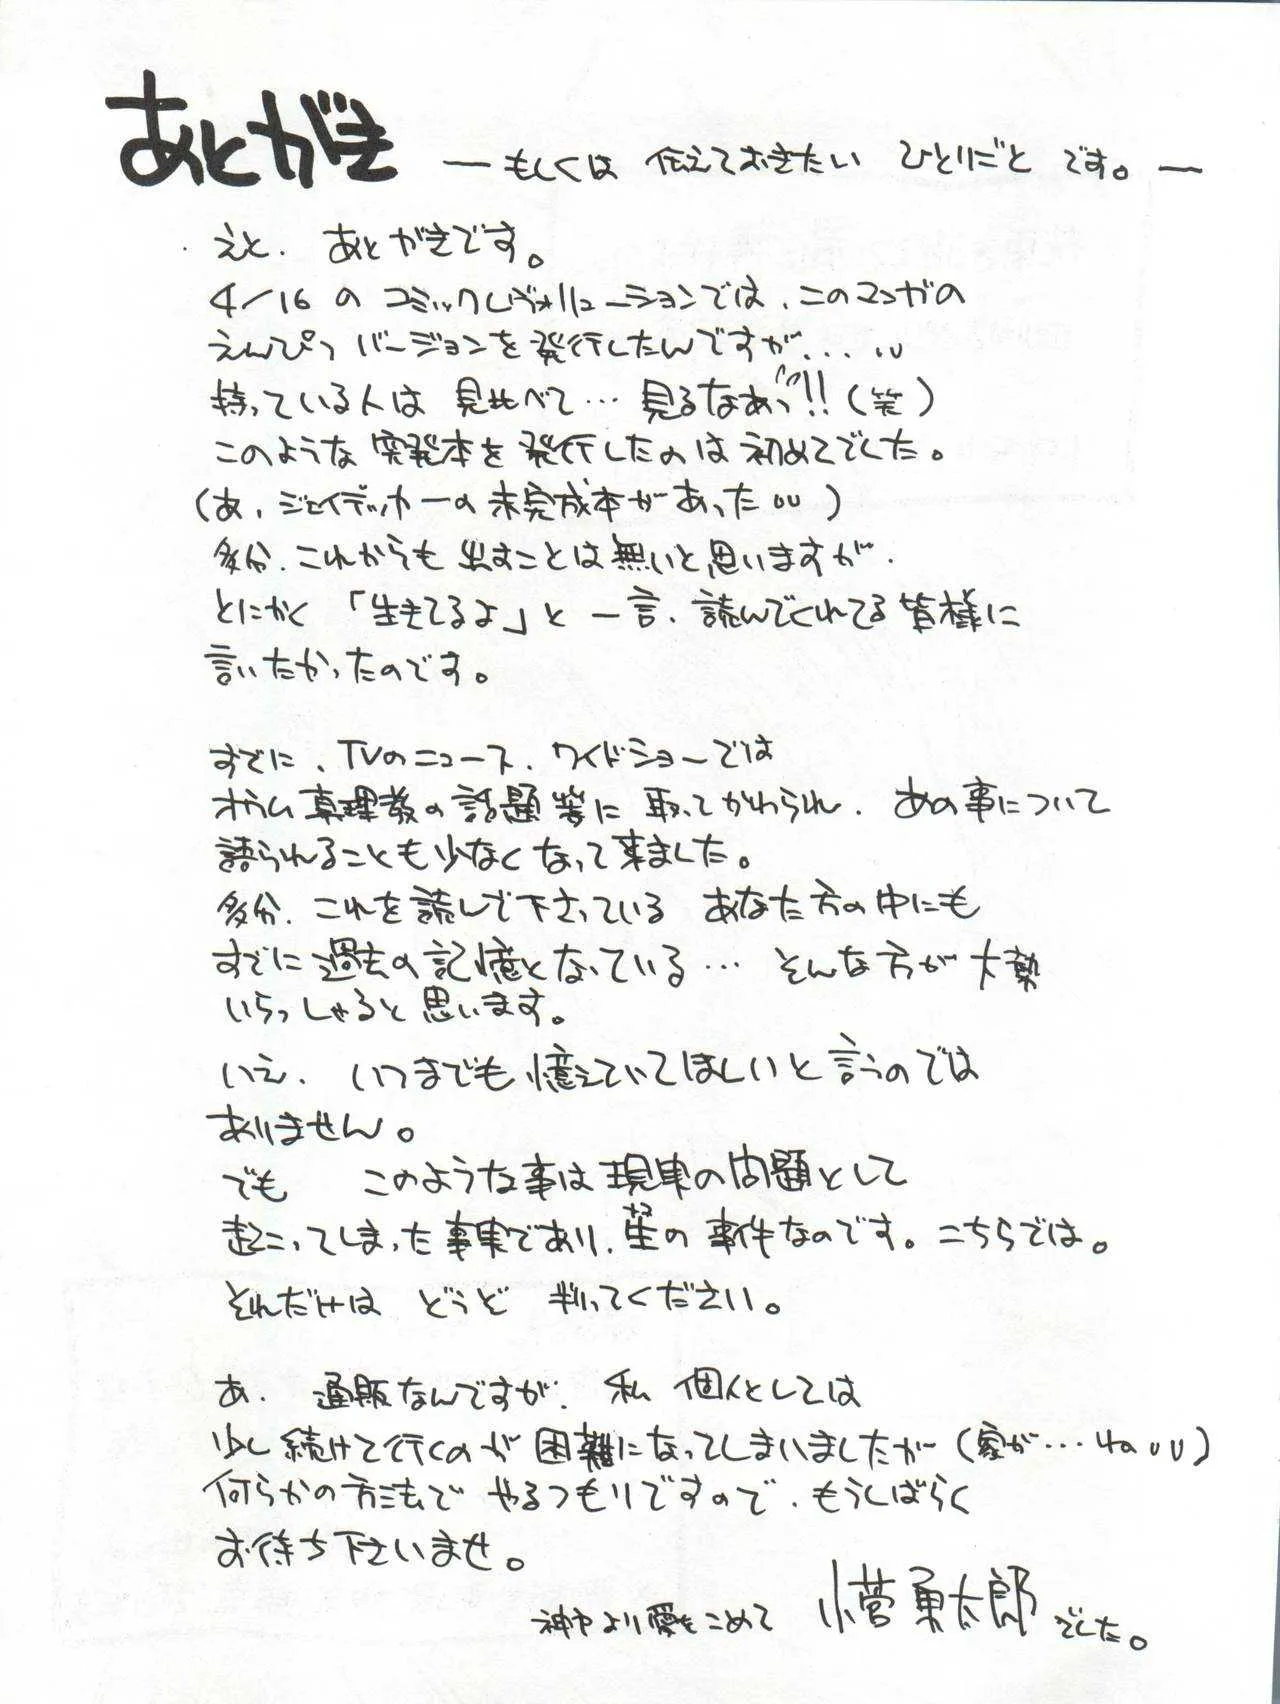 あとがき ―もしくは 伝えておきたい ひとりごと です。―
えと、あとがきです。
4/16 の コミックレヴォリューションでは、このマンガの
えんぴつ バージョンを発行したんですが...
持っている人は 見比べて… 見るなあっ!!(笑)
このような 突発本を発行したのは初めてでした。
(あ、ジェイデッカーの未完成本があった)
多分、これからも出すことは無いと思いますが、
とにかく「生きてるよ」と一言、読んでくれてる皆様に
言いたかったのです。
すでに、TVのニュース、ワイドショーでは
オウム真理教の話題等に取ってかわられ、あの事について
語られることも少なくなって来ました。
多分、これを読んで下さっている あなた方の中にも
すでに過去の記憶となっている… そんな方が大勢
いらっしゃると思います。
いえ、いつまでも憶えていてほしいと言うのでは
ありません。
でも このような事は現実の問題として
起こってしまった事実であり、生の事件なのです。こちらでは。
それだけは どうぞ 判ってください。
あ、通販なんですが、私個人としては
少し続けて行くのが困難になってしまいましたが(家が…ね)
何らかの方法で やるつもりですので、もうしばらく
お待ち下さいませ。
神戸より愛をこめて 小菅勇太郎でした。